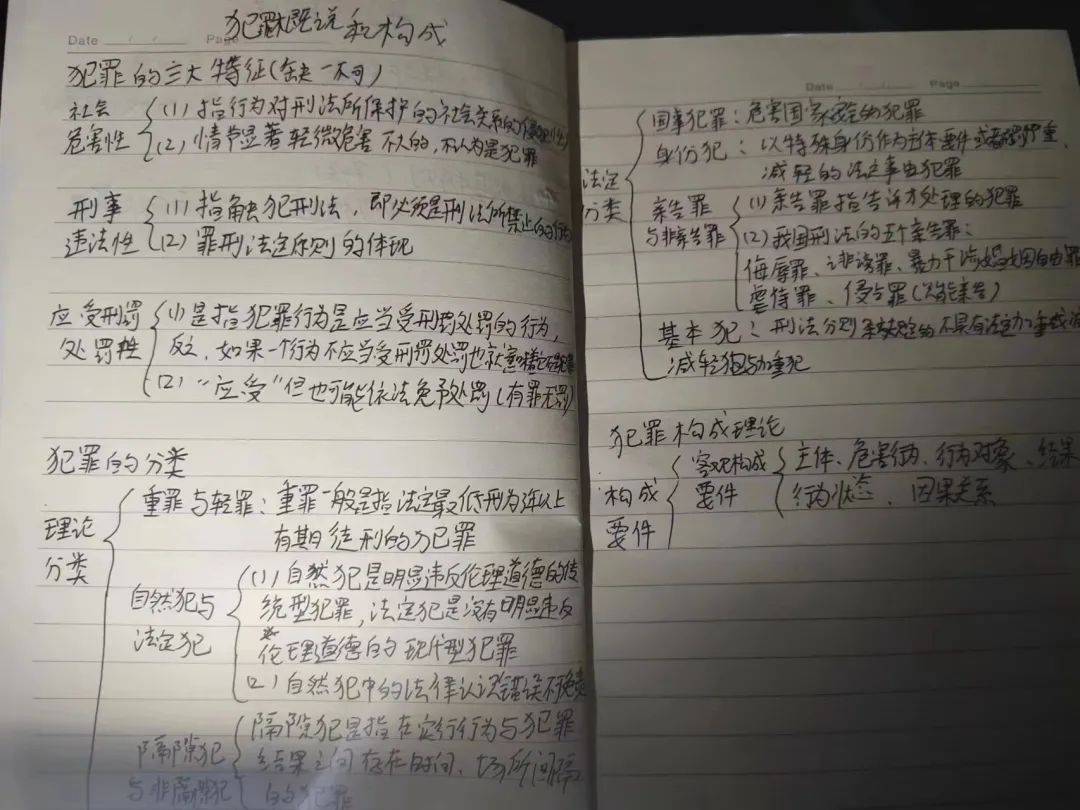 Date Page
犯罪概说和构成
犯罪的三大特征(缺一不可)
社会危害性
(1) 指行为对刑法所保护的社会关系的
(2) 情节显著轻微危害不大的,不认为是犯罪
刑事违法性
(1) 指触犯刑法,即必须是刑法所禁止的行为
(2) 罪刑法定原则的体现
应受刑罚处罚性
(1) 是指犯罪行为是应当受刑罚处罚的行为,
反之,如果一个行为不应当受刑罚处罚也就意味着它不是犯罪
(2) “应受”但也可能依法免予处罚(有罪无罚)
犯罪的分类
理论分类
重罪与轻罪:重罪一般是指法定最低刑为3年以上
有期徒刑的犯罪
自然犯与法定犯
(1) 自然犯是明显违反伦理道德的传
统型犯罪,法定犯是没有明显违反
伦理道德的现代型犯罪
(2) 自然犯中的法律认识错误不免责
隔隙犯与非隔隙犯
隔隙犯是指在实行行为与犯罪
结果之间存在时间、场所间隔
的的犯罪
Date Page
法定分类
国事犯罪:危害国家安全的犯罪
身份犯:以特殊身份作为主体要件或者刑罚重、
减轻的法定事由犯罪
亲告罪与非亲告罪
(1) 亲告罪指告诉才处理的犯罪
(2) 我国刑法的五个亲告罪:
侮辱罪、诽谤罪、暴力干涉婚姻自由罪
虐待罪、侵占罪(只能亲告)
基本犯:刑法分则条文规定的不具有法定加重或
减轻犯与加重犯
犯罪构成理论
构成要件
客观构成要件
主体、危害行为、行为对象、结果
行为状态、因果关系